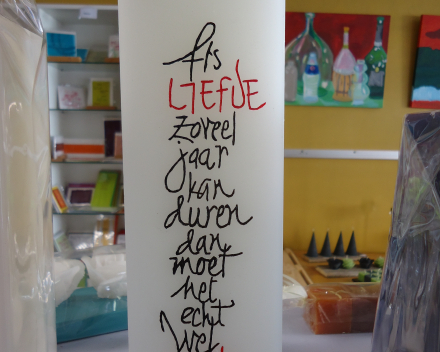 Als
LIEFDE
zoveel
jaar
kan
duren
dan
moet
het
echt
Wel